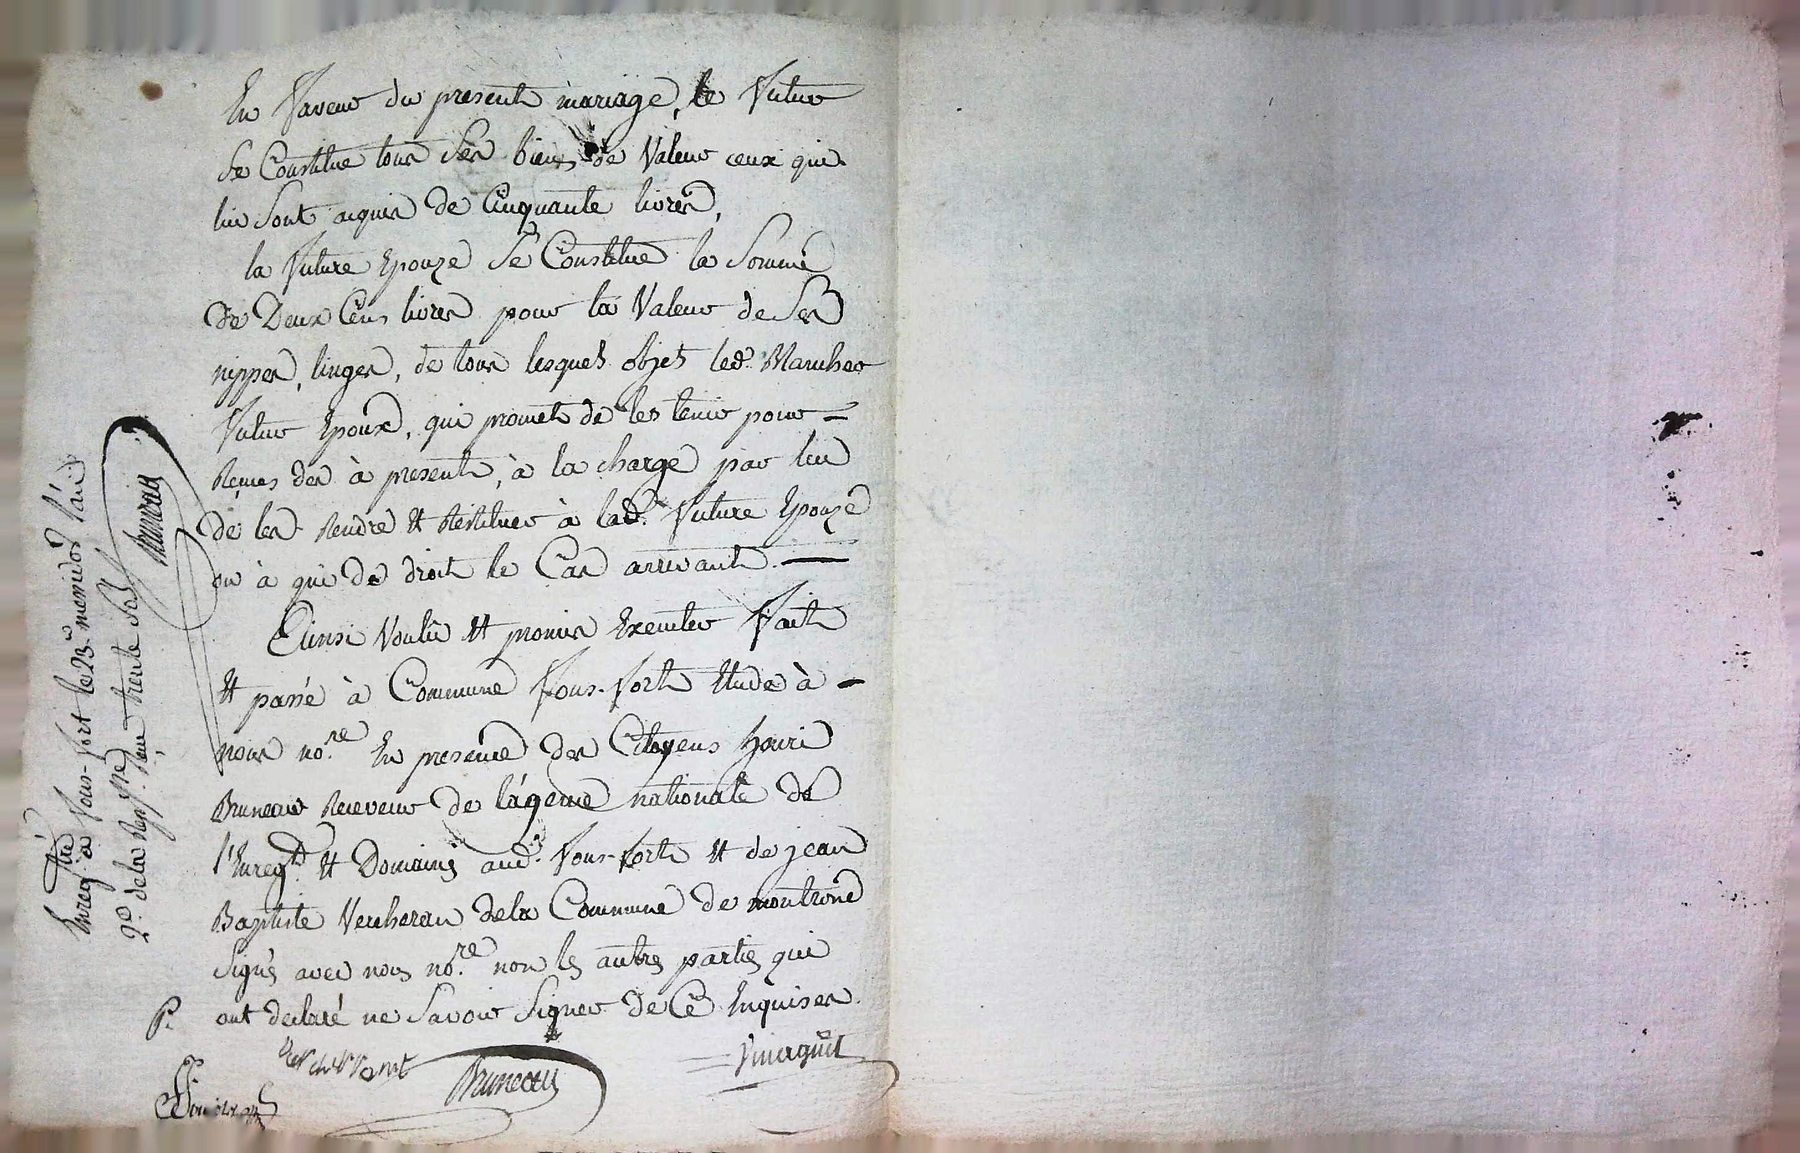 En faveur du present mariage, le futur
Se Constitue tous Ses biens de Valeur ceux qui
lui Sont acquis de Cinquante livres,
la future Epouze Se Constitue la Somme
De Deux Cens livres pour la Valeur de Ses
nippes, linges, de tous lesquels objets led. Marcheo
futur Epoux, qui promet de les tenir pour
Reçues des à present, à la charge par lui
de les Rendre et Restituer à lad. future Epouze
ou à qui de droit le Cas arrivant.
Ainsi Voulu et promis Executer fait
et passé à Commune fons-fort Etude à
nous no.re En presence des Citoyens henri
Bruneau Receveur de l'agence nationale de
l'Enreg.t et Domaines aud. fons-fort et de jean
Baptiste Vercheran dela Commune de montrond
Signés avec nous no.re non les autres parties qui
ont declaré ne Savoir Signer de Ce Enquises.
P.
Bruneau
Enreg.tré à fons-fort le 23.e messidor l'an
2.e dela Rep.que Reçu trente Sols
Bruneau